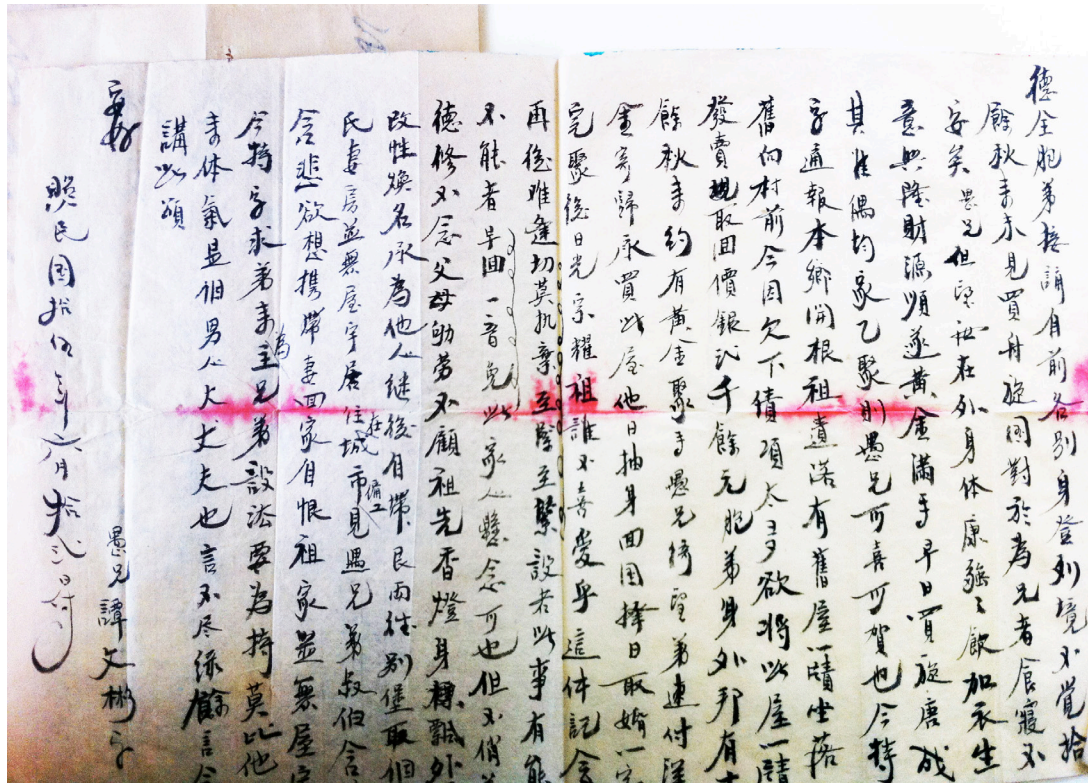 德全胞弟接誦自前各別身登別境不覺拾
餘秋來未見買舟旋國對於為兄者食寢不
安矣愚兄但望在外身体康強飲加衣生
意興隆財源順遂黃金滿手早日買旋唐成
其佳偶均家乙聚則愚兄可喜可賀也今特
字通報本鄉開根祖遺落有舊屋一牘坐落
舊向村前今因欠下債項太多欲將此屋一牘
發賣現取回價銀弍千餘元胞弟身外邦有十
餘秋來約有黃金聚手愚兄待望弟速付洋
金寄歸承買此屋他日抽身回國擇日取婚一家
完聚後日光宗耀祖誰不喜愛乎這件記念
再後难逢切莫执棄至緊至緊設若此事有能
不能者早回一音免此家人懸念可也但不俏弟
德修不念父母劬劳不顧祖先香燈身標飄外
改性煥名承為他人继後自帶艮両往別堡取個
民妻房並無屋宇居住在城市傭工見遇兄弟叔伯含
含悲欲想携帶妻回家自恨祖家并無屋宇
今特字求弟來為主兄弟設法要為持莫比他
來体氣并個男人大丈夫也言不尽係餘言今
講此頌
安好
愚兄譚文彬字
照民国拾伍年六月拾弍日付